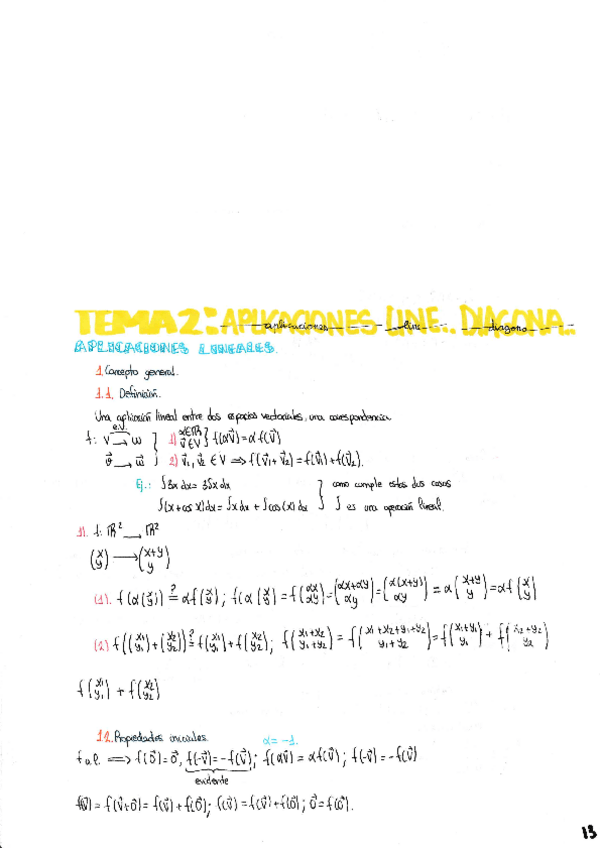 TEMA 2: APLICACIONES LINE.. DIAGONA..
aplicaciones line diagona
APLICACIONES LINEALES.
1. Concepto general.
1.1. Definición.
Una aplicación lineal entre dos espacios vectoriales, una correspondencia
e.v.
f: V → W } 1) α∈ℝ v⃗∈V } f(αv⃗)=αf(v⃗)
v⃗ → w⃗ } 2) v⃗₁, v⃗₂ ∈ V ⟹ f(v⃗₁+v⃗₂)=f(v⃗₁)+f(v⃗₂).
Ej.: ∫3x dx = 3∫x dx } como cumple estas dos cosas
∫(x+cos x)dx = ∫x dx + ∫cos(x) dx } ∫ es una operación lineal.
1). f: ℝ² → ℝ²
(x y) → (x+y y)
(1). f(α(x y)) ?= αf(x y); f(α(x y)) = f(αx αy) = (αx+αy αy) = (α(x+y) αy) = α(x+y y) = αf(x y)
(2) f((x₁ y₁)+(x₂ y₂)) ?= f(x₁ y₁)+f(x₂ y₂); f(x₁+x₂ y₁+y₂) = f(x₁+x₂+y₁+y₂ y₁+y₂) = f(x₁+y₁ y₁) + f(x₂+y₂ y₂)
f(x₁ y₁) + f(x₂ y₂)
1.2. Propiedades iniciales. α=-1.
f a.l. ⟹ f(0⃗)=0⃗, f(-v⃗)=-f(v⃗); f(αv⃗)=αf(v⃗); f(-v⃗)=-f(v⃗)
evidente
f(v⃗)=f(v⃗+0⃗)=f(v⃗)+f(0⃗); f(v⃗)=f(v⃗)+f(0⃗); 0⃗=f(0⃗).
13